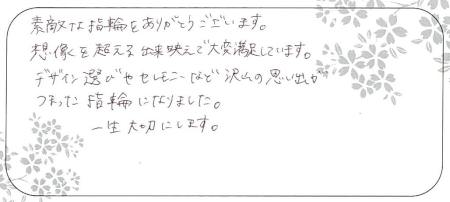 素敵な指輪をありがとうございます。
想像を超える出来映えで大変満足しています。
デザイン選びやセレモニーなど沢山の思い出が
つまった指輪になりました。
一生大切にします。